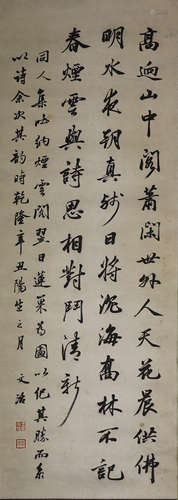 高迥山中閣蕭閑世外人天花晨供佛
明水夜朝真日將海高林不記
春煙雲與詩思相對鬥清新
同人集納煙雲閣翌日蓮巢為圖以紀其勝而系
以詩余次其韵時乾隆辛丑陽生之月 文治